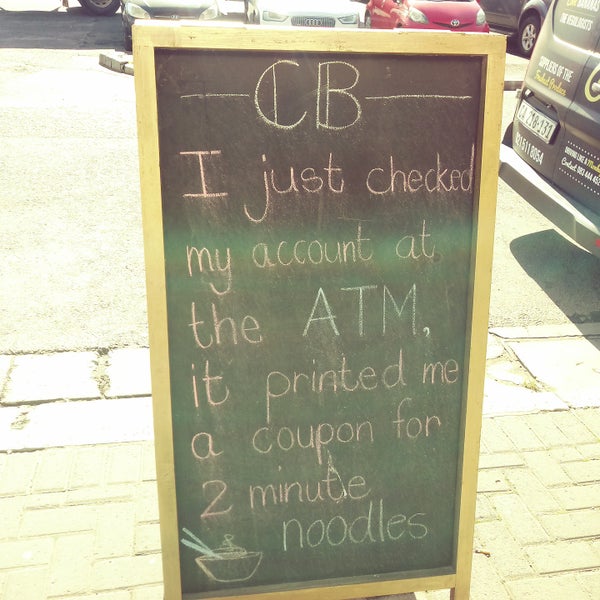 CB
I just checked
my account at
the ATM,
it printed me
a coupon for
2 minute
noodles
SUPPLIERS OF THE